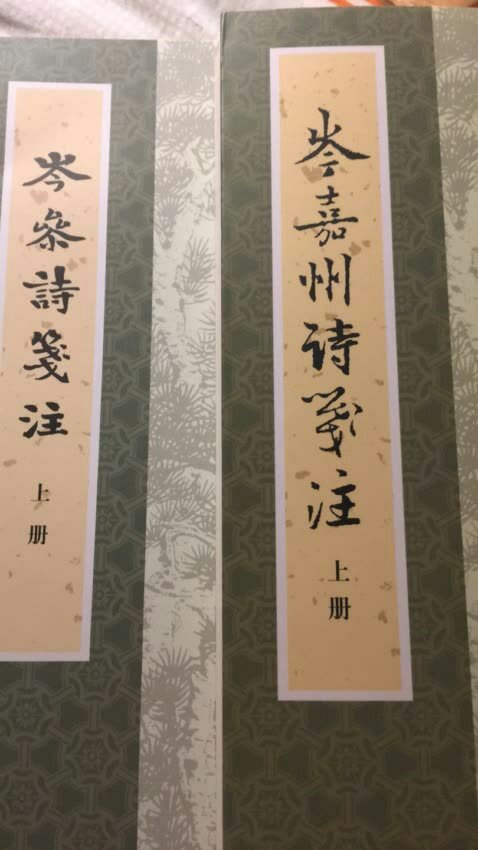 岑参詩箋注
上册
岑嘉州诗笺注
上册